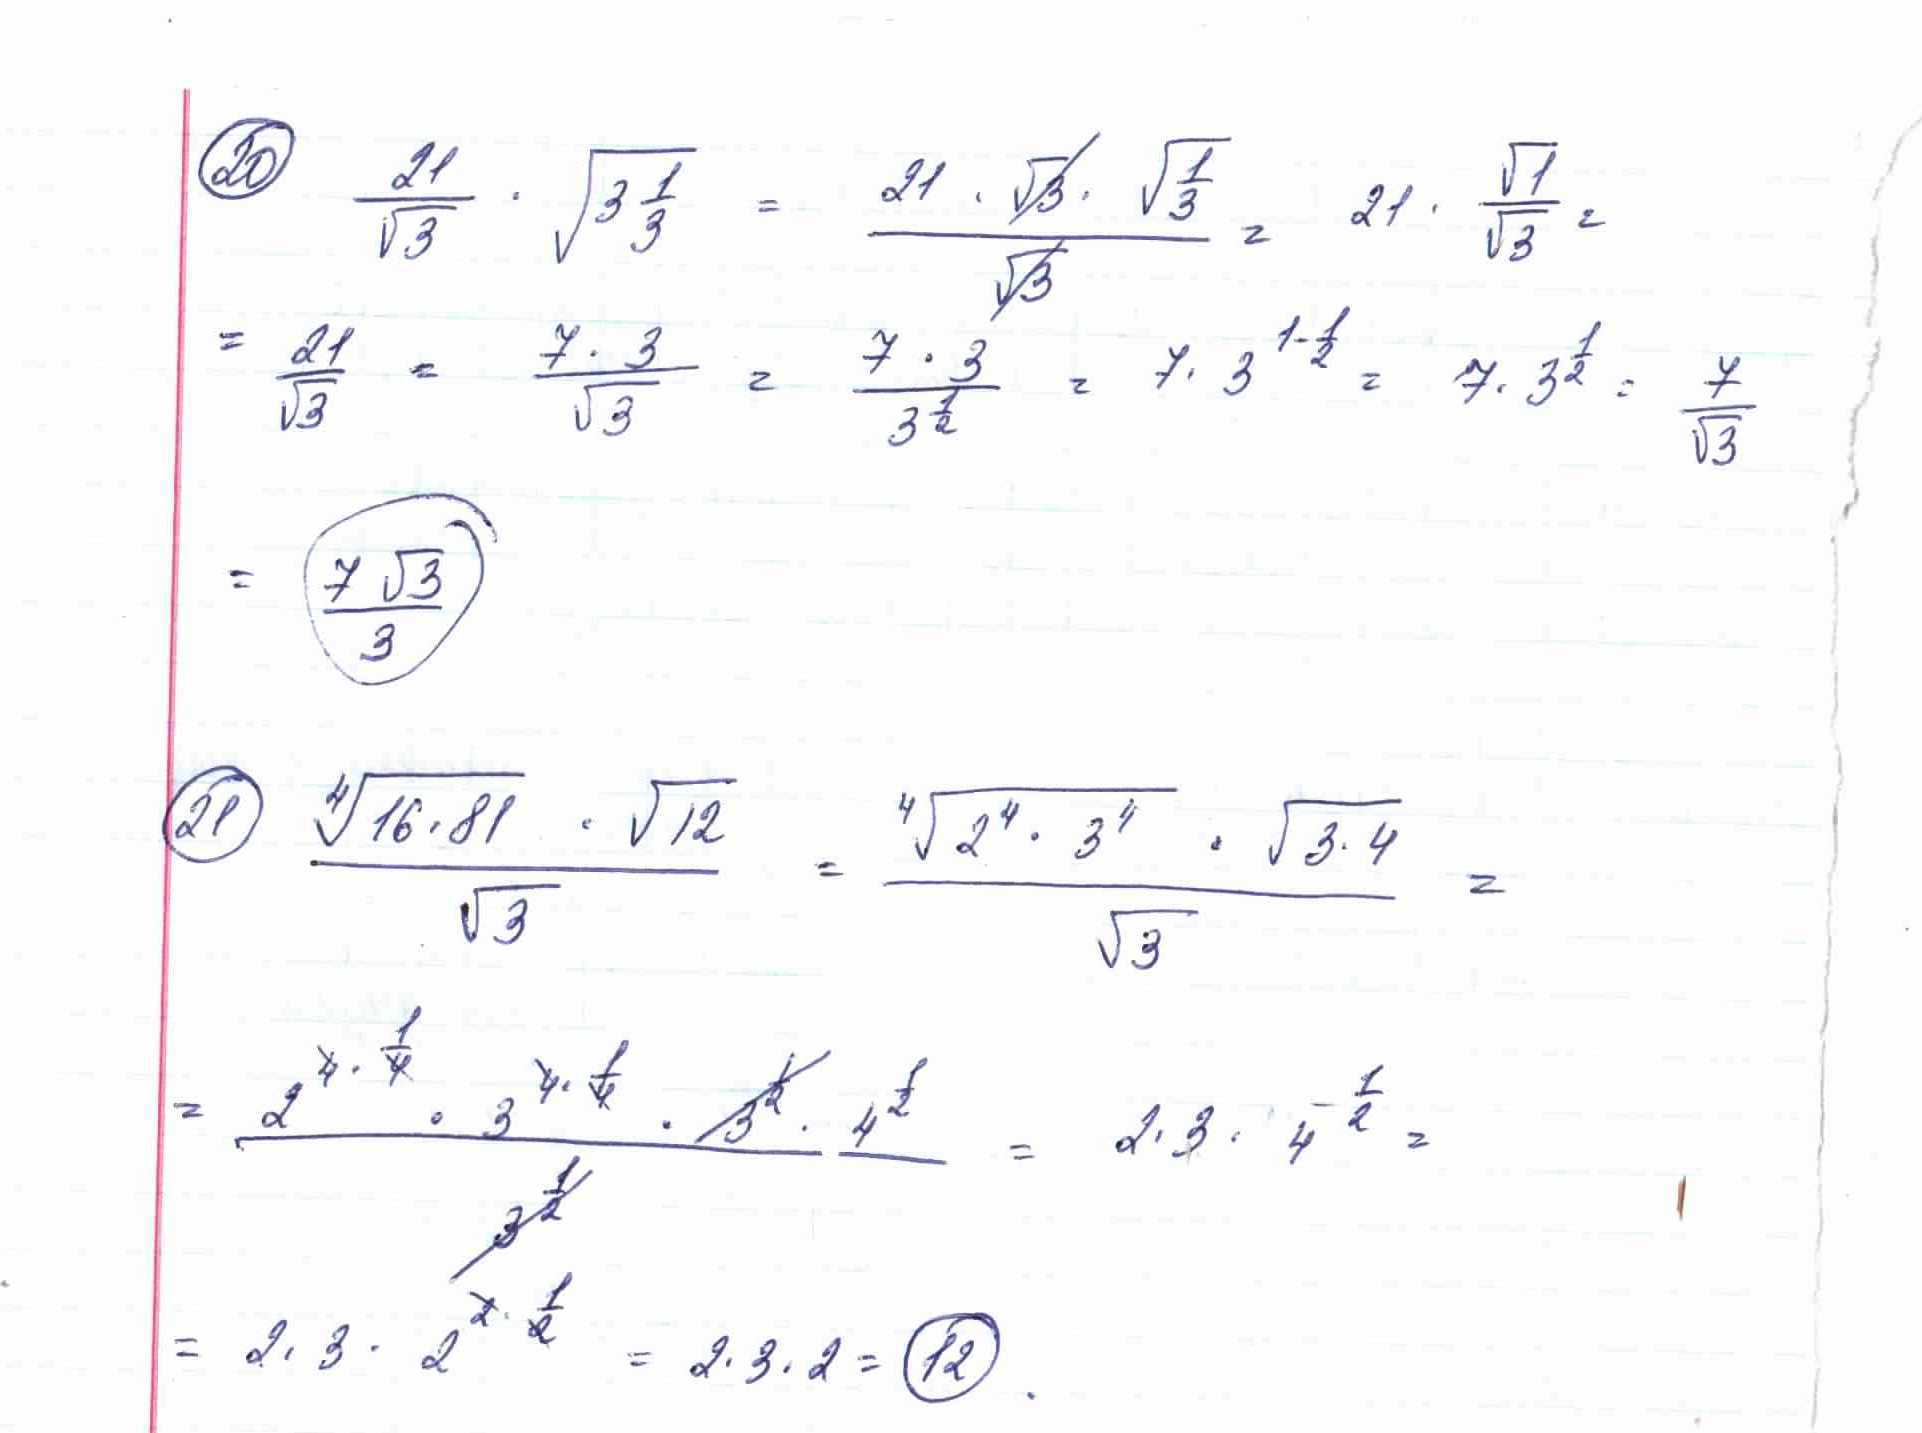 20 21/√3 · √(3 1/3) = (21 · √3 · √(1/3))/√3 = 21 · √1/√3 =
= 21/√3 = (7 · 3)/√3 = (7 · 3)/3^(1/2) = 7 · 3^(1-1/2) = 7 · 3^(1/2) = 7/√3
= 7√3/3
21 (⁴√(16·81) · √12)/√3 = (⁴√(2⁴ · 3⁴) · √(3·4))/√3 =
= (2^(4·1/4) · 3^(4·1/4) · 3^(1/2) · 4^(1/2))/3^(1/2) = 2·3· 4^(-1/2) =
= 2·3· 2^(2·1/2) = 2·3·2 = 12.